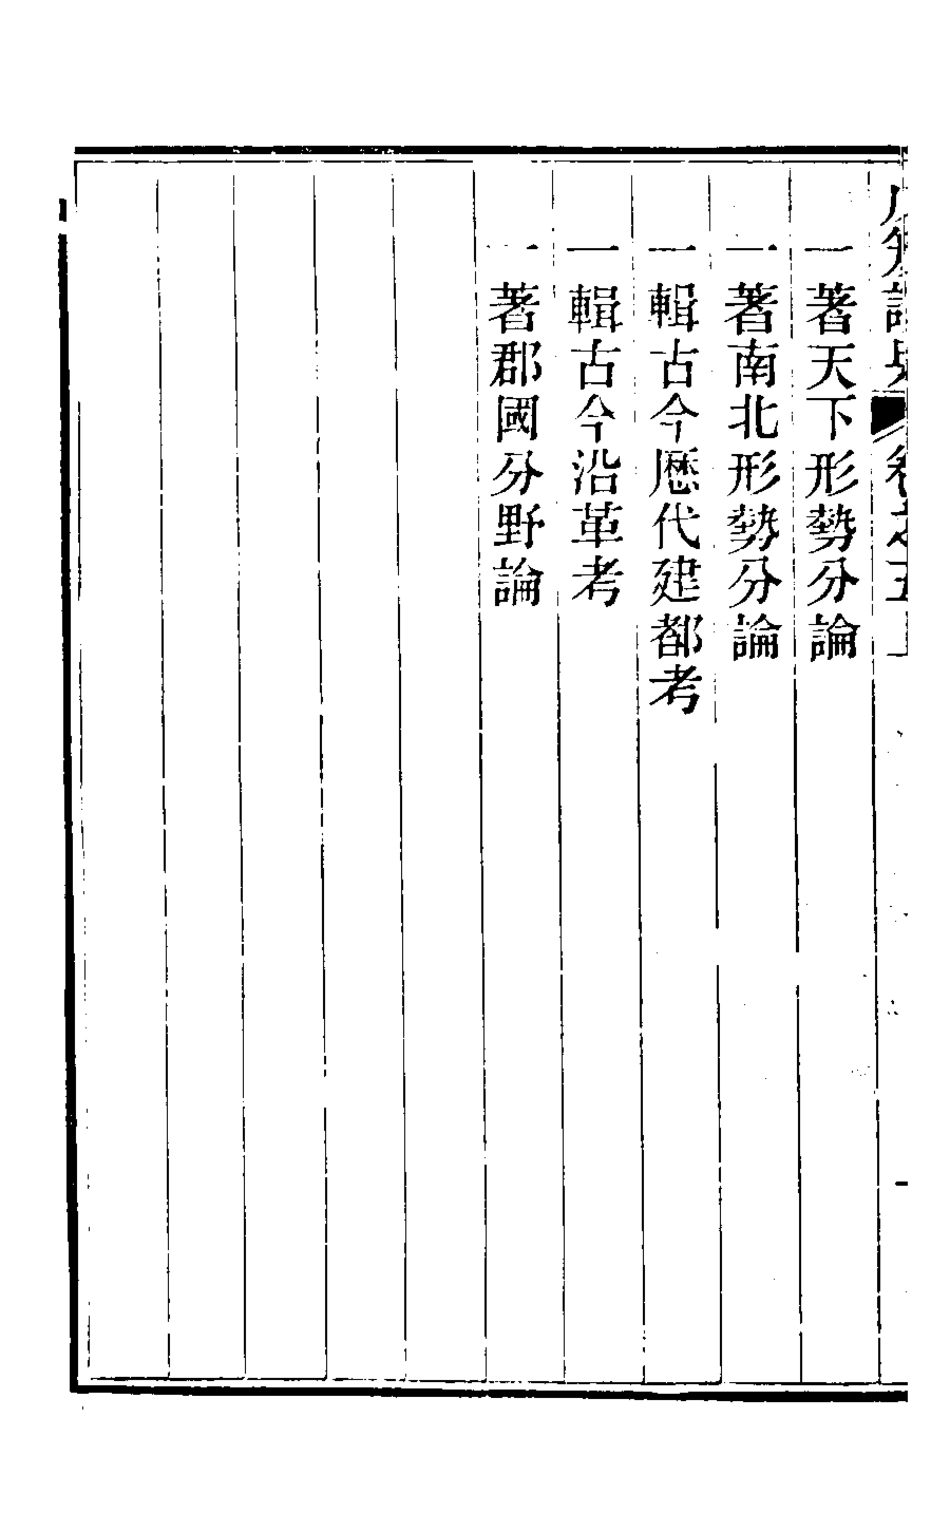 一著天下形勢分論
一著南北形勢分論
一輯古今歷代建都考
一輯古今沿革考
一著郡國分野論